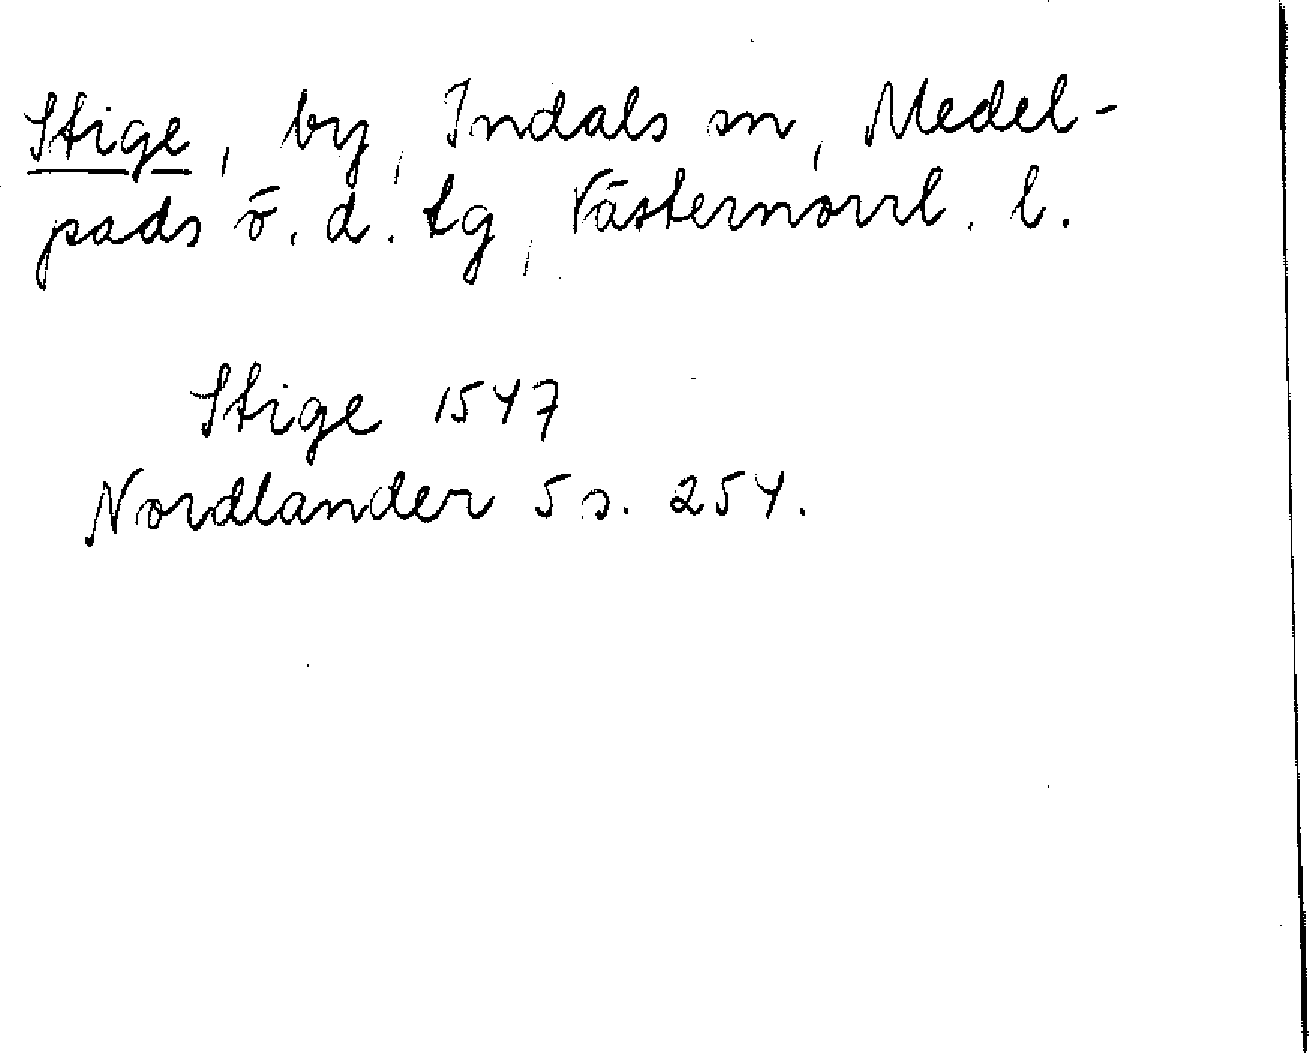 Stige, by, Indals sn, Medel-
pads ö. d. tg, Västernorrl. l.
Stige 1547
Nordlander 5 s. 254.